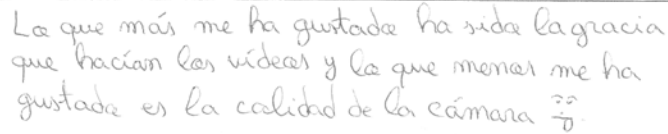 Lo que más me ha gustado ha sido la gracia
que hacían los vídeos y lo que menos me ha
gustado es la calidad de la cámara